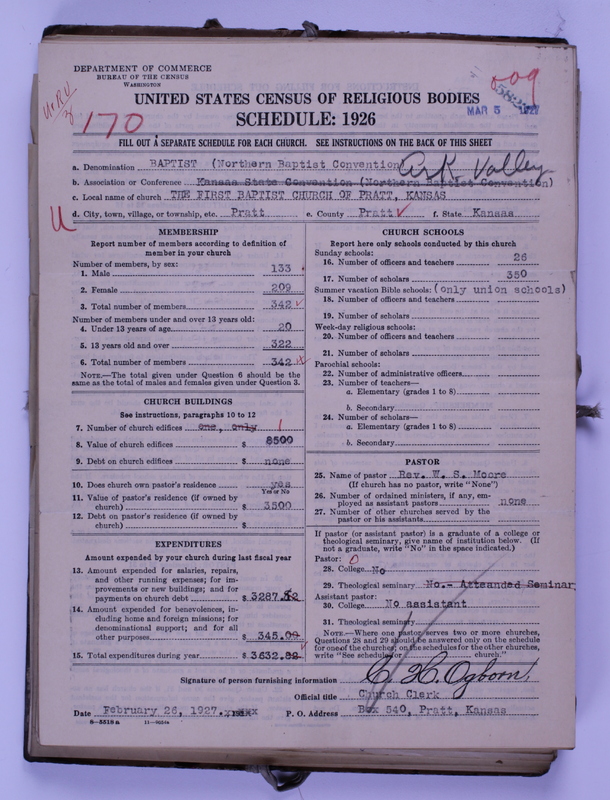 DEPARTMENT OF COMMERCE
BUREAU OF THE CENSUS
WASHINGTON
UNITED STATES CENSUS OF RELIGIOUS BODIES
SCHEDULE: 1926
170
MAR 5 1927
FILL OUT A SEPARATE SCHEDULE FOR EACH CHURCH. SEE INSTRUCTIONS ON THE BACK OF THIS SHEET
a. Denomination BAPTIST (Northern Baptist Convention)
Ark. Valley
b. Association or Conference Kansas State Convention (Northern Baptist Convention)
c. Local name of church THE FIRST BAPTIST CHURCH OF PRATT, KANSAS
U
d. City, town, village, or township, etc. Pratt e. County Pratt f. State Kansas
MEMBERSHIP
Report number of members according to definition of
member in your church
Number of members, by sex:
1. Male 133
2. Female 209
3. Total number of members 342
Number of members under and over 13 years old:
4. Under 13 years of age 20
5. 13 years old and over 322
6. Total number of members 342
NOTE.—The total given under Question 6 should be the
same as the total of males and females given under Question 3.
CHURCH BUILDINGS
See instructions, paragraphs 10 to 12
7. Number of church edifices one, only 1
8. Value of church edifices $ 8500
9. Debt on church edifices $ none
10. Does church own pastor's residence? yes
Yes or No
11. Value of pastor's residence (if owned by
church) $ 3500
12. Debt on pastor's residence (if owned by
church) $
EXPENDITURES
Amount expended by your church during last fiscal year
13. Amount expended for salaries, repairs,
and other running expenses; for im-
provements or new buildings; and for
payments on church debt $ 3287.
14. Amount expended for benevolences, in-
cluding home and foreign missions; for
denominational support; and for all
other purposes $ 345.00
15. Total expenditures during year $ 3632.
CHURCH SCHOOLS
Report here only schools conducted by this church
Sunday schools:
16. Number of officers and teachers 26
17. Number of scholars 350
Summer vacation Bible schools: (only union schools)
18. Number of officers and teachers
19. Number of scholars
Week-day religious schools:
20. Number of officers and teachers
21. Number of scholars
Parochial schools:
22. Number of administrative officers
23. Number of teachers—
a. Elementary (grades 1 to 8)
b. Secondary
24. Number of scholars—
a. Elementary (grades 1 to 8)
b. Secondary
PASTOR
25. Name of pastor Rev. W. S. Moore
(If church has no pastor, write "None")
26. Number of ordained ministers, if any, em-
ployed as assistant pastors none
27. Number of other churches served by the
pastor or his assistants
If pastor (or assistant pastor) is a graduate of a college or
theological seminary, give name of institution below. (If
not a graduate, write "No" in the space indicated.)
Pastor: 0
28. College No
29. Theological seminary No.- Atteanded Seminar
Assistant pastor:
30. College No assistant
31. Theological seminary
NOTE.—Where one pastor serves two or more churches,
Questions 28 and 29 should be answered only on the schedule
for one of the churches; on the schedules for the other churches,
write "See schedule for church."
Signature of person furnishing information C. H. Ogborn,
Official title Church Clerk
Date February 26, 1927. P. O. Address Box 540, Pratt, Kansas
8—5518a